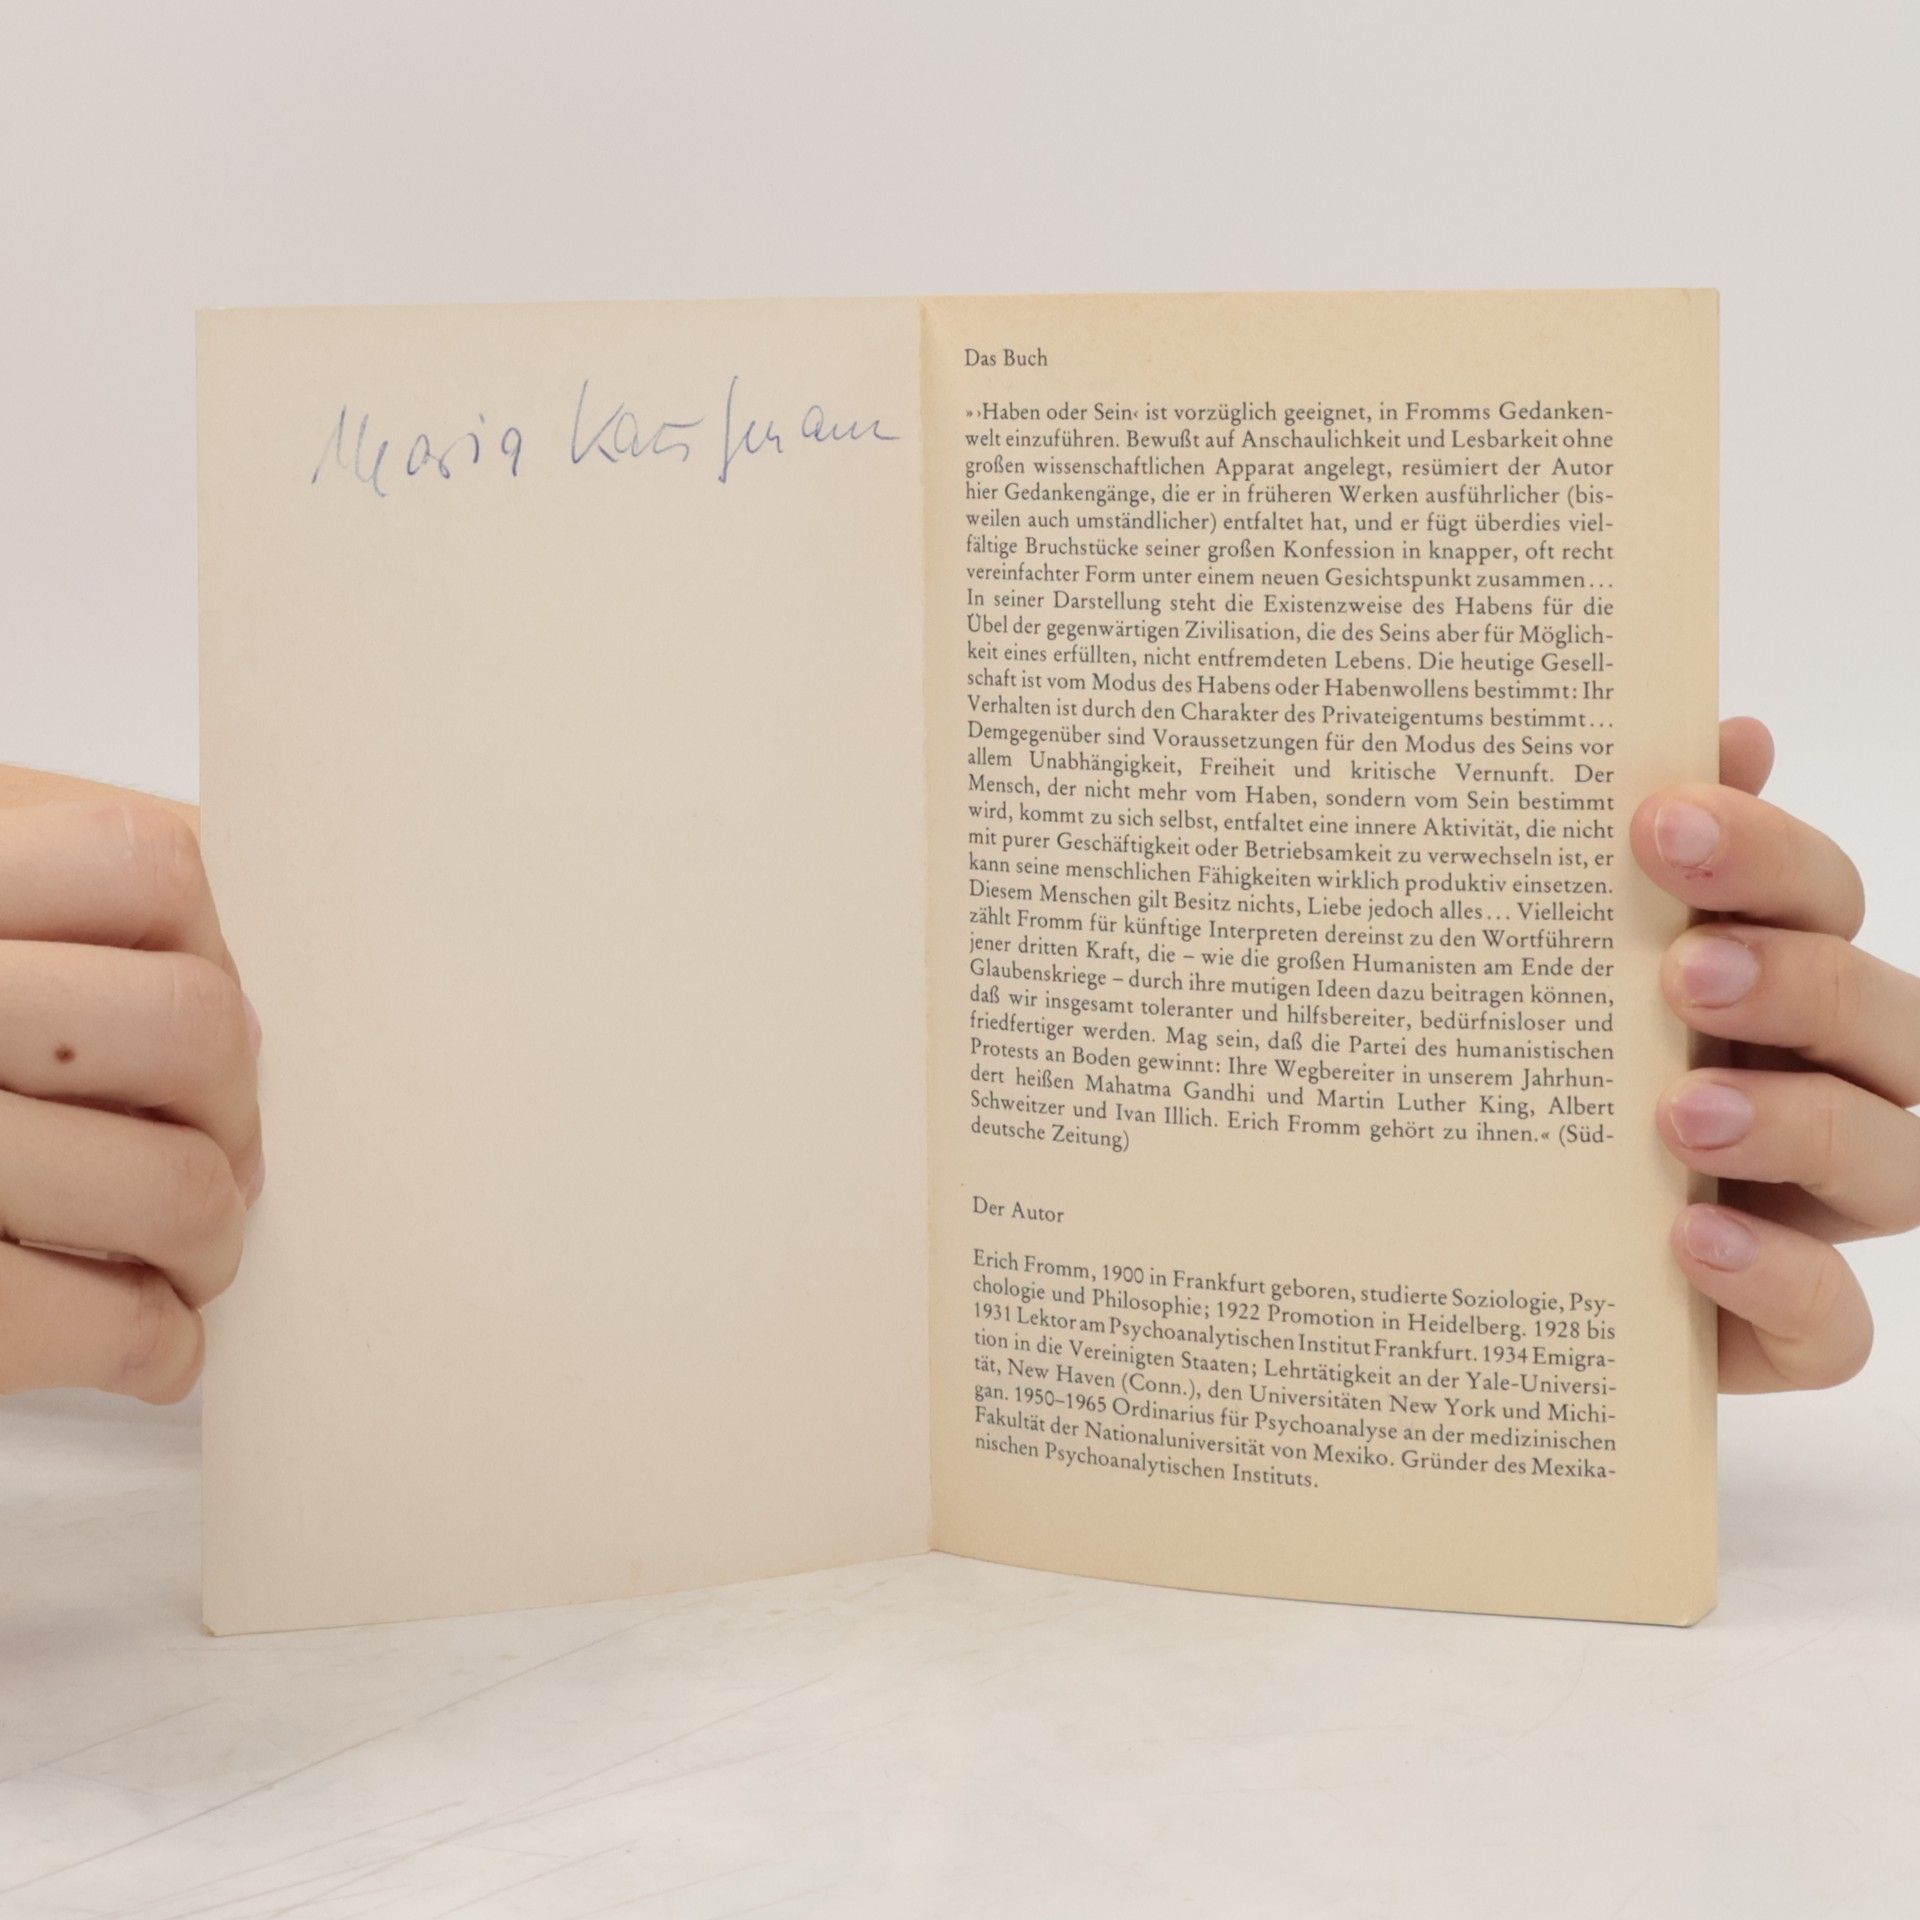 Maria Kaufmann
Das Buch
»›Haben oder Sein‹ ist vorzüglich geeignet, in Fromms Gedanken-
welt einzuführen. Bewußt auf Anschaulichkeit und Lesbarkeit ohne
großen wissenschaftlichen Apparat angelegt, resümiert der Autor
hier Gedankengänge, die er in früheren Werken ausführlicher (bis-
weilen auch umständlicher) entfaltet hat, und er fügt überdies viel-
fältige Bruchstücke seiner großen Konfession in knapper, oft recht
vereinfachter Form unter einem neuen Gesichtspunkt zusammen...
In seiner Darstellung steht die Existenzweise des Habens für die
Übel der gegenwärtigen Zivilisation, die des Seins aber für Möglich-
keit eines erfüllten, nicht entfremdeten Lebens. Die heutige Gesell-
schaft ist vom Modus des Habens oder Habenwollens bestimmt: Ihr
Verhalten ist durch den Charakter des Privateigentums bestimmt...
Demgegenüber sind Voraussetzungen für den Modus des Seins vor
allem Unabhängigkeit, Freiheit und kritische Vernunft. Der
Mensch, der nicht mehr vom Haben, sondern vom Sein bestimmt
wird, kommt zu sich selbst, entfaltet eine innere Aktivität, die nicht
mit purer Geschäftigkeit oder Betriebsamkeit zu verwechseln ist, er
kann seine menschlichen Fähigkeiten wirklich produktiv einsetzen.
Diesem Menschen gilt Besitz nichts, Liebe jedoch alles... Vielleicht
zählt Fromm für künftige Interpreten dereinst zu den Wortführern
jener dritten Kraft, die – wie die großen Humanisten am Ende der
Glaubenskriege – durch ihre mutigen Ideen dazu beitragen können,
daß wir insgesamt toleranter und hilfsbereiter, bedürfnisloser und
friedfertiger werden. Mag sein, daß die Partei des humanistischen
Protests an Boden gewinnt: Ihre Wegbereiter in unserem Jahrhun-
dert heißen Mahatma Gandhi und Martin Luther King, Albert
Schweitzer und Ivan Illich. Erich Fromm gehört zu ihnen.« (Süd-
deutsche Zeitung)
Der Autor
Erich Fromm, 1900 in Frankfurt geboren, studierte Soziologie, Psy-
chologie und Philosophie; 1922 Promotion in Heidelberg. 1928 bis
1931 Lektor am Psychoanalytischen Institut Frankfurt. 1934 Emigra-
tion in die Vereinigten Staaten; Lehrtätigkeit an der Yale-Universi-
tät, New Haven (Conn.), den Universitäten New York und Michi-
gan. 1950–1965 Ordinarius für Psychoanalyse an der medizinischen
Fakultät der Nationaluniversität von Mexiko. Gründer des Mexika-
nischen Psychoanalytischen Instituts.